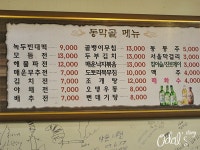 동막골 메뉴
녹두빈대떡 9,000 골뱅이무침 13,000 동동주 5,000
모듬전 13,000 두부김치 13,000 서울막걸리 3,000
해물파전 12,000 매운낙지볶음 13,000
매운부추전 7,000 도토리묵무침 10,000 맥주 4,000
김치전 7,000 조개탕 12,000 백하수
야채전 7,000 오뎅우동 8,000
배추전 7,000 번데기탕 8,000
Odal